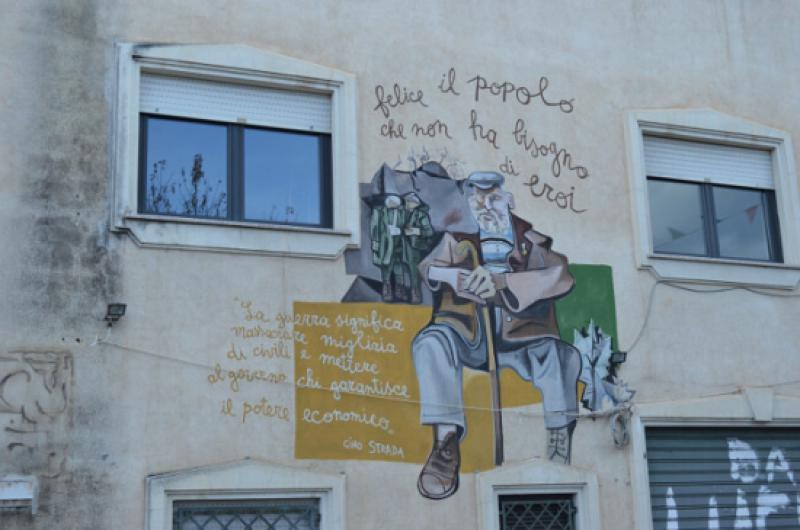 felice il popolo
che non ha bisogno
di
eroi
"La guerra significa
massacrare migliaia
di civili e mettere
al governo chi garantisce
il potere economico„
GINO STRADA
DA